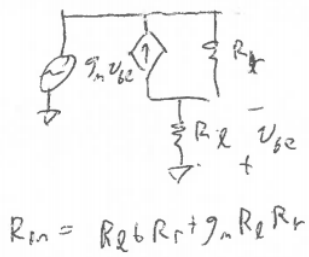 g_m v_be
R_r
R_l
−
v_be
+
R_in = R_l + R_r + g_m R_l R_r